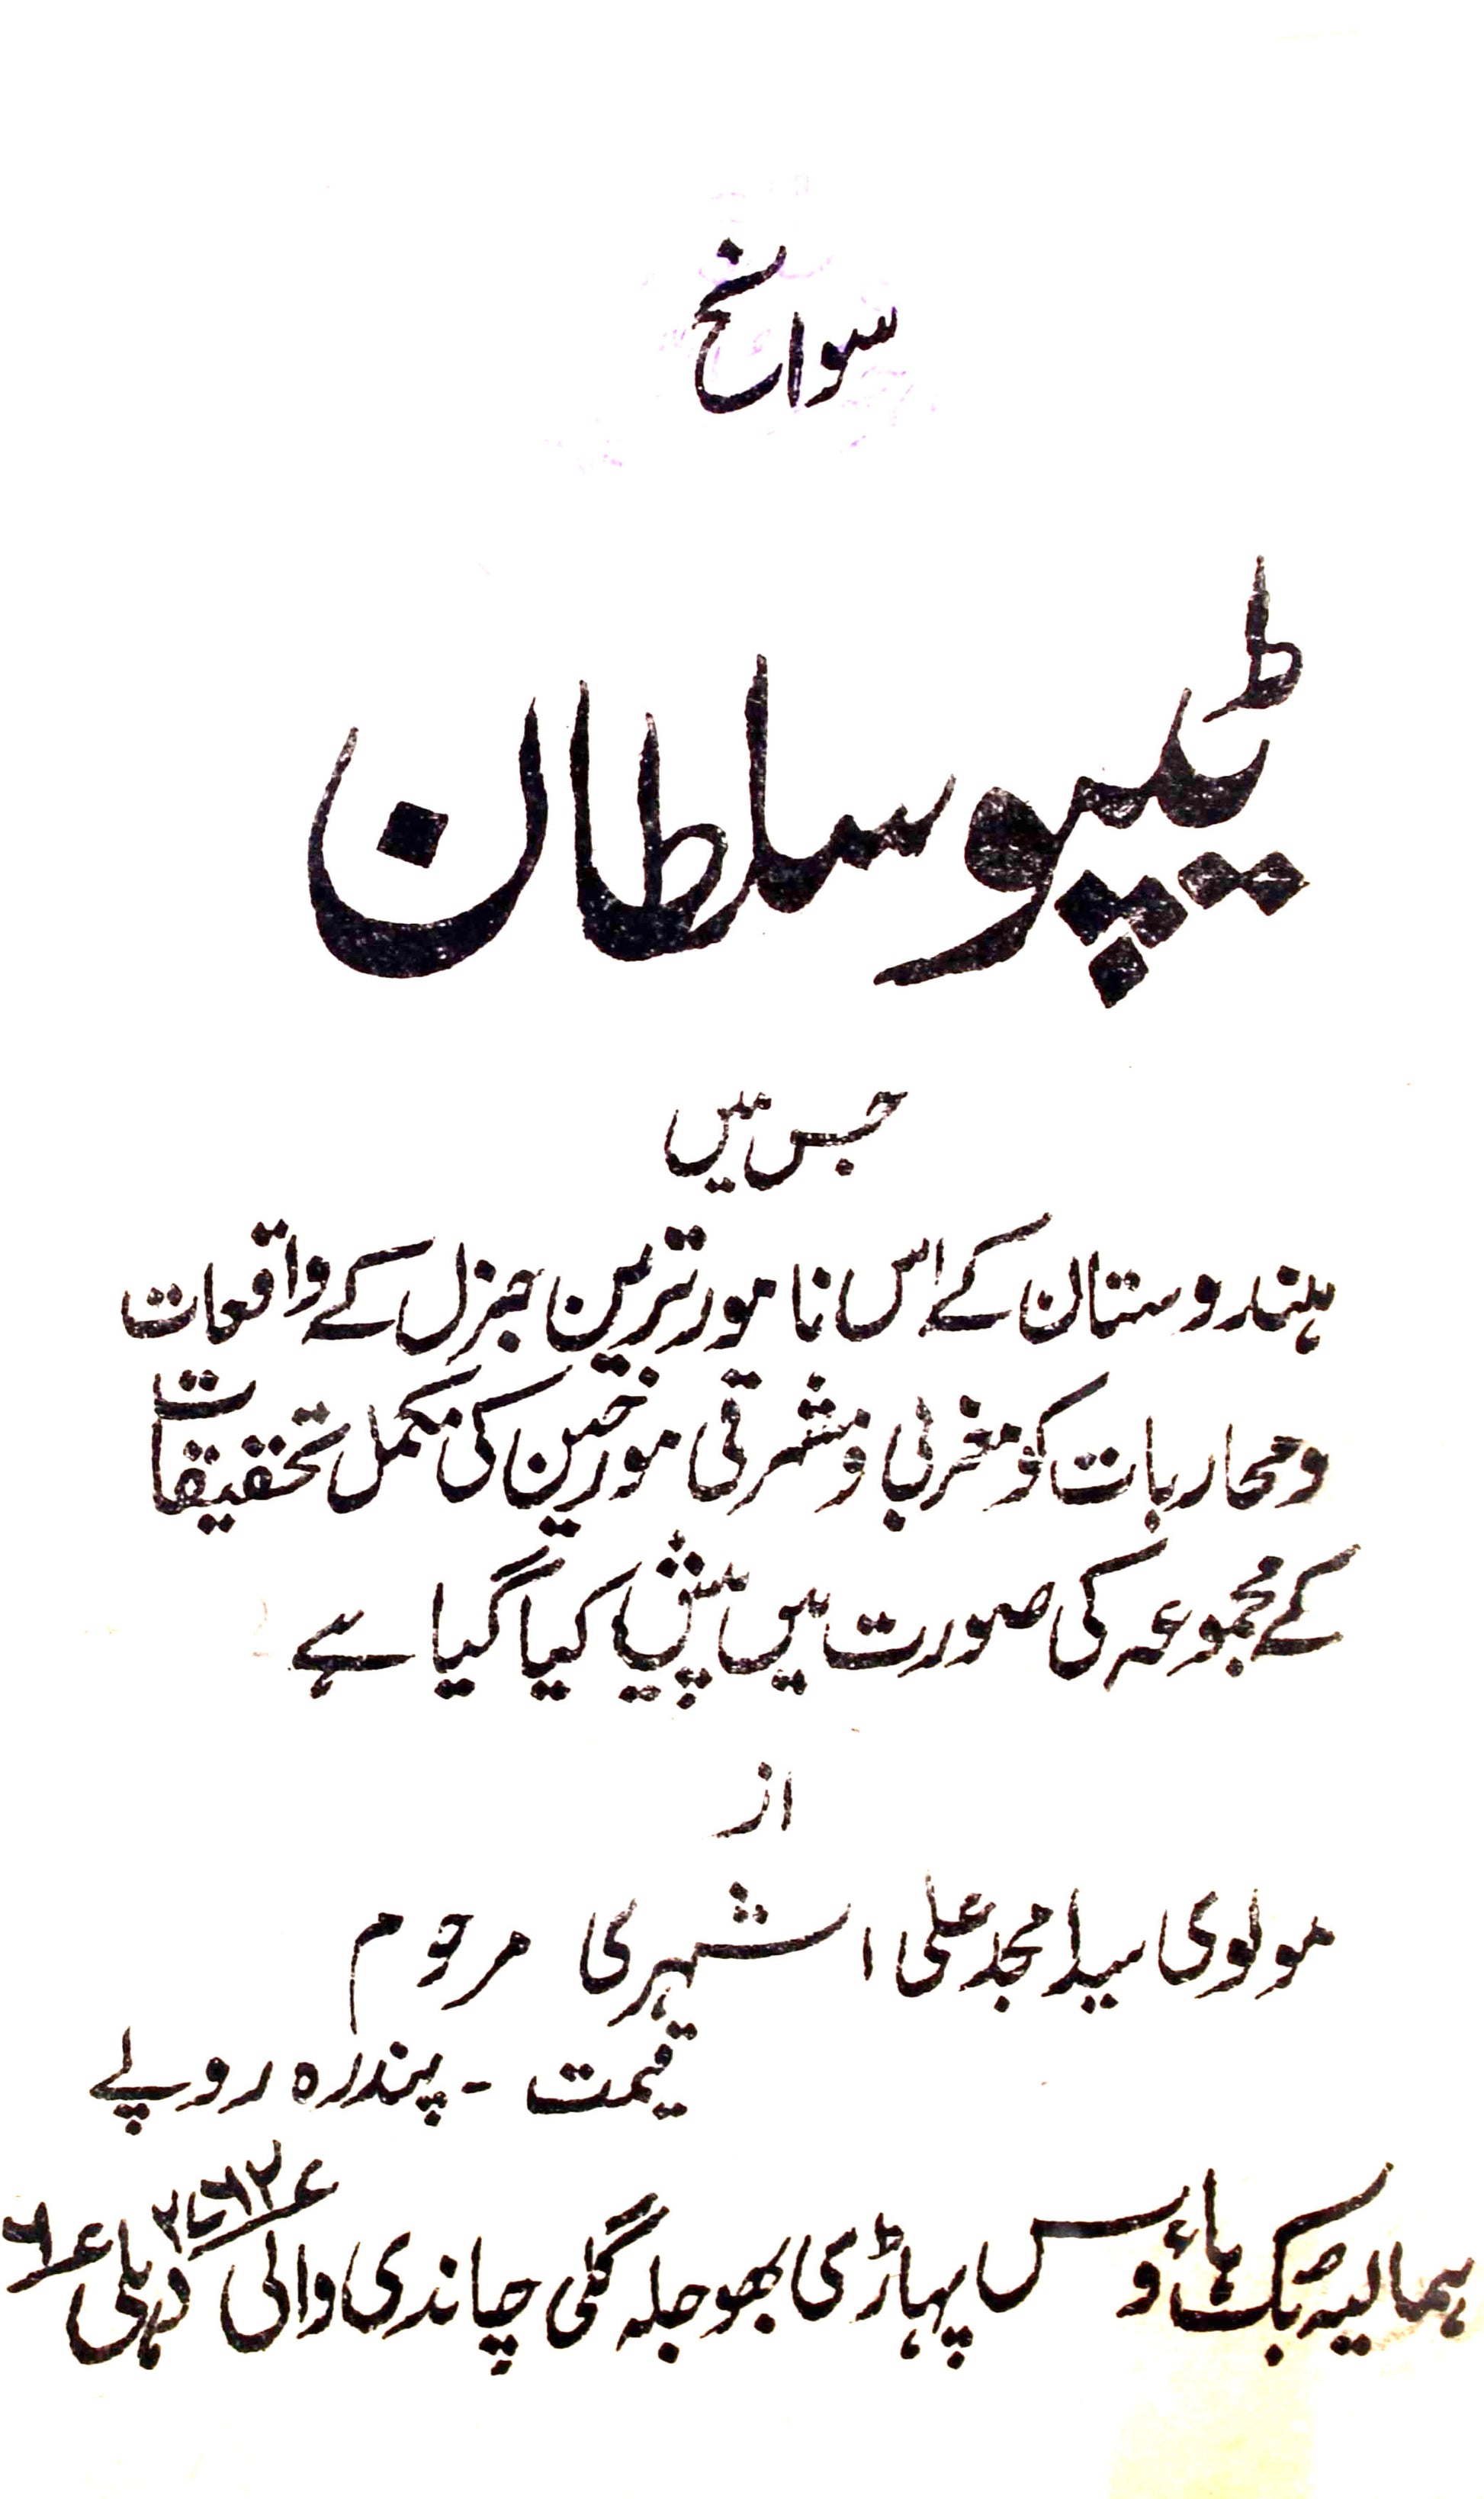 سوانح
ٹیپو سلطان
جس میں
ہندوستان کے اس نامور ترین جنرل کے واقعات
و محاربات کو مغربی و مشرقی مورخین کی مکمل تحقیقات
کے مجموعہ کی صورت میں پیش کیا گیا ہے
از
مولوی سید امجد علی اشہری مرحوم
قیمت - پندرہ روپے
ہمالیہ بک ہاؤس پہاڑی بھوجلہ گلی چاندی والی دہلی ۶